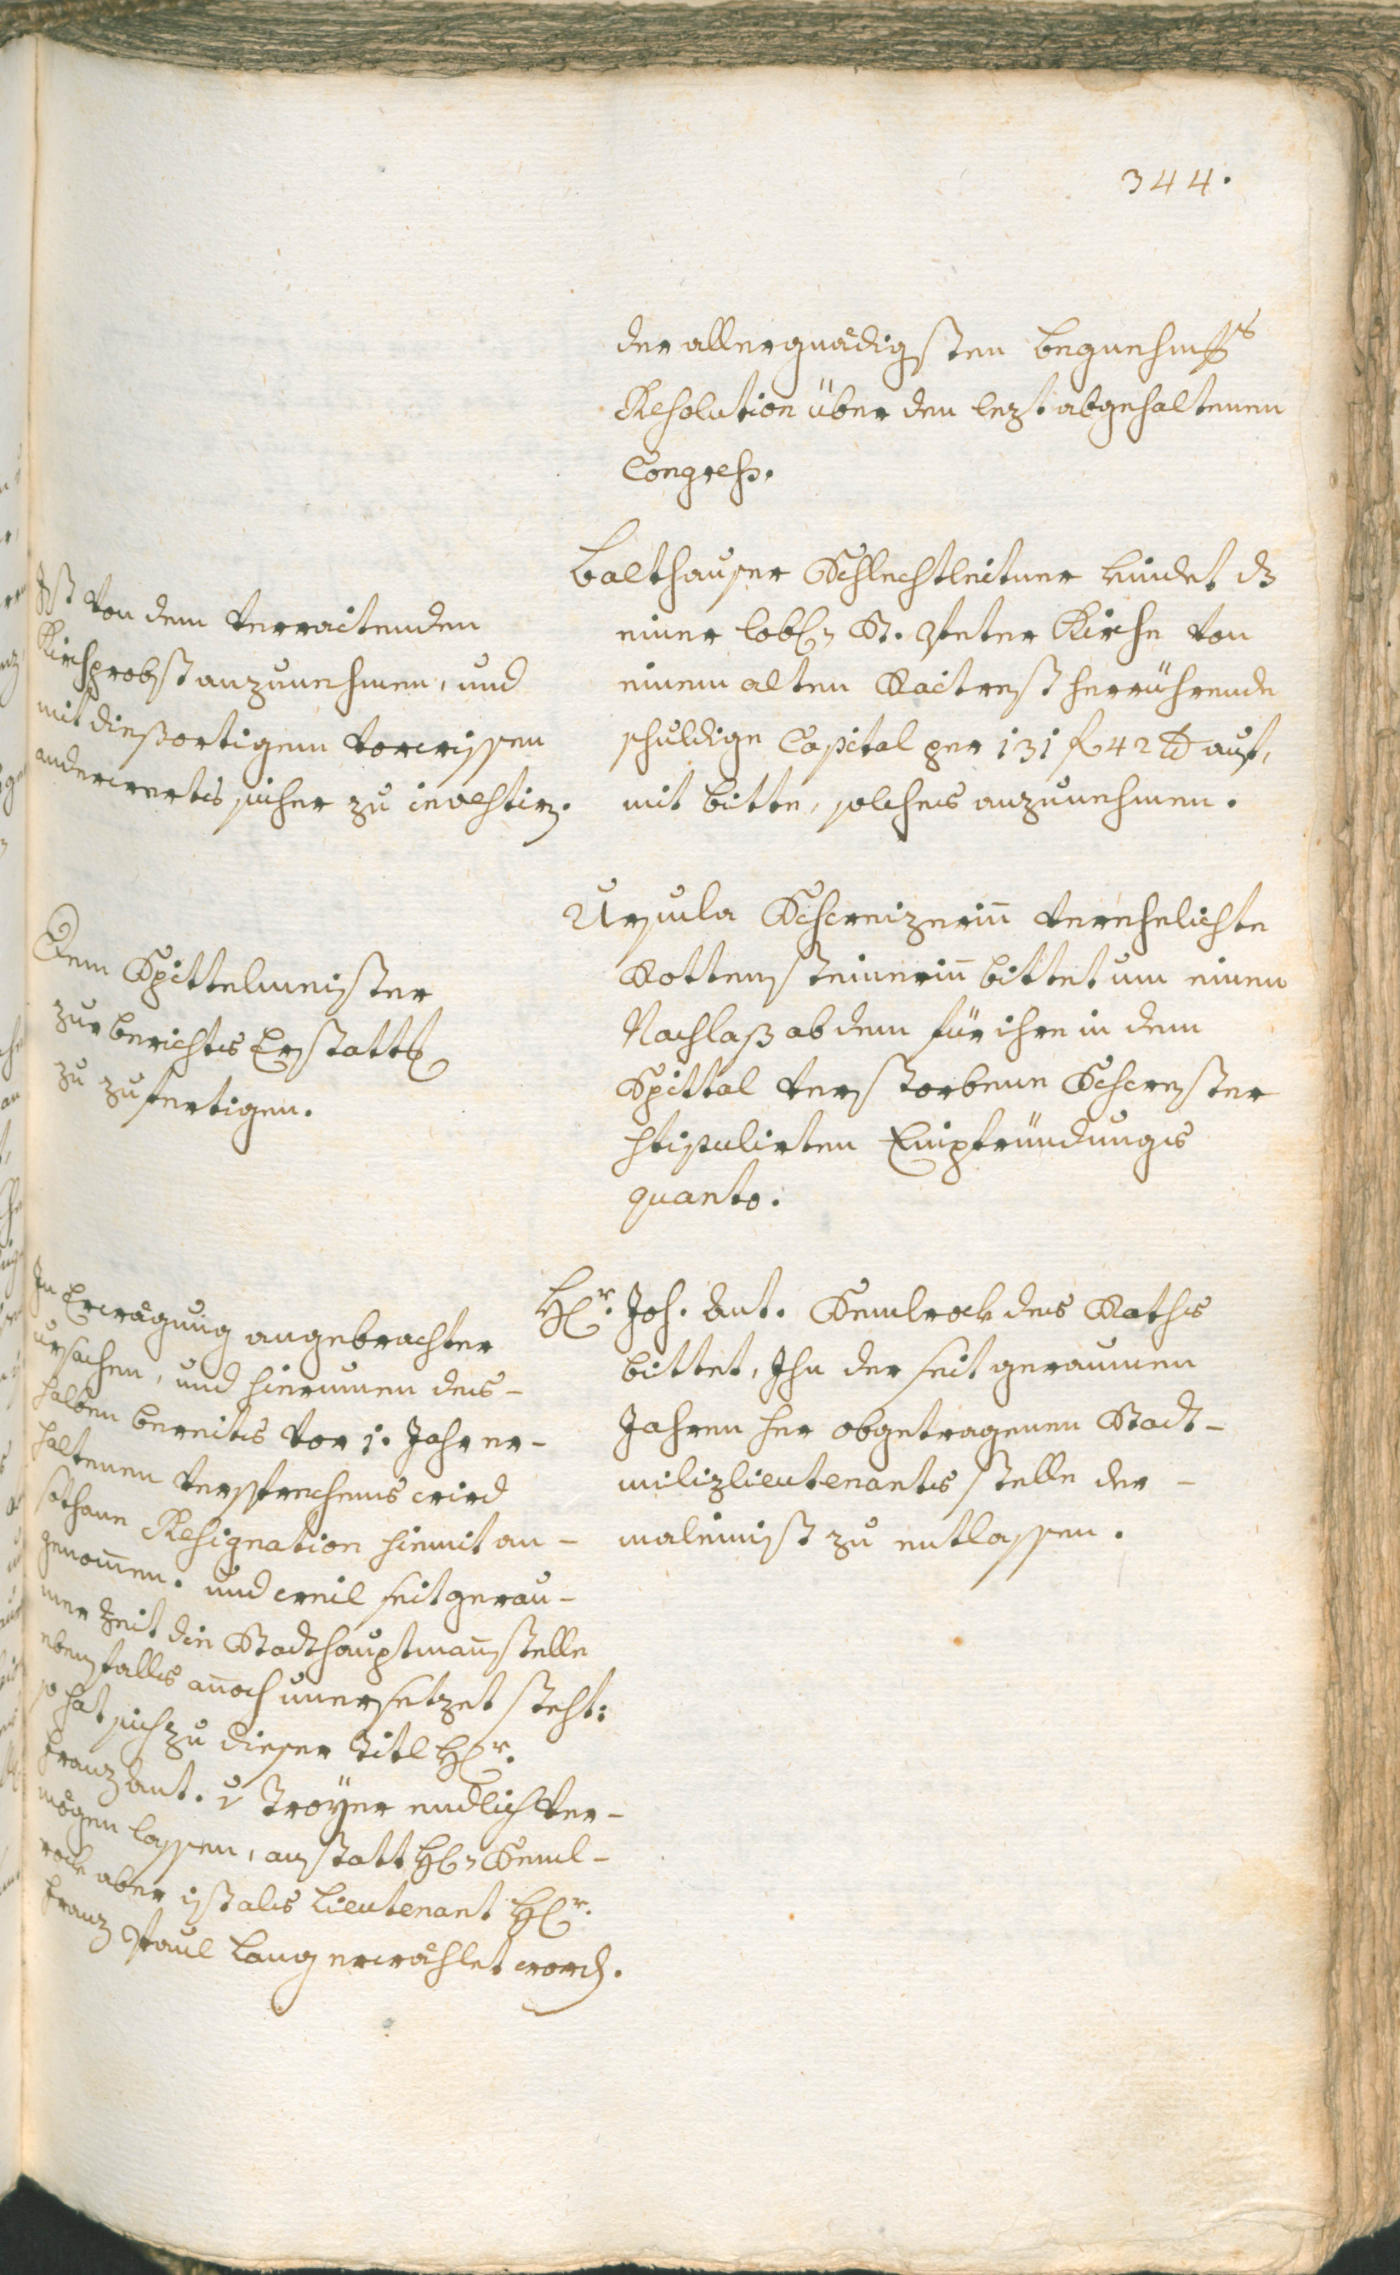 344.
der allergnädigsten begnehmhß
Resolution über den lezt abgehaltenen
Congress.
Balthauser Schlechtleitner kündet dz
einer lobl. St. Peter Kirche von
einem alten Raitrest herrührende
schuldige Capital per 131 f 42 auf,
mit bitte, solches anzunehmen.
Ist von dem verraitenden
Kirchprobst anzunehmen, und
mit dießortigem vorwissen
anderwerts sicher zu investirn.
Ursula Schweizerin̄ verehelichte
Rottensteinerin̄ bittet um einen
Nachlaß ab dem für ihre in dem
Spittal verstorbene Schwester
stipulirten Einpfründungs
quanto.
Dem Spittelmeister
zur berichts Erstattg
zu zufertigen.
Hr. Joh. Ant. Kemlrock des Raths
bittet, Ihn der seit geraumen
Jahren her obgetragenen Stadt-
milizlieutenants stelle der-
maleinist zu entlassen.
In Erwägung angebrachter
ursachen, und hierumen des-
halben bereits vor 1. Jahr er-
haltenen versprechens wird
sothane Resignation hiemit an-
genom̄en. und weil seit gerau-
mer zeit die Stadthauptman̄stelle
ebenfalls an̄och unersetzet steht:
so hat sich zu dieser Titl Hr.
Franz Ant. v Troÿer endlich ver-
mögen lassen, anstatt Hl. Keml-
rock aber ist als Lieutenant Hr.
Franz Paul Lang erwählet word.